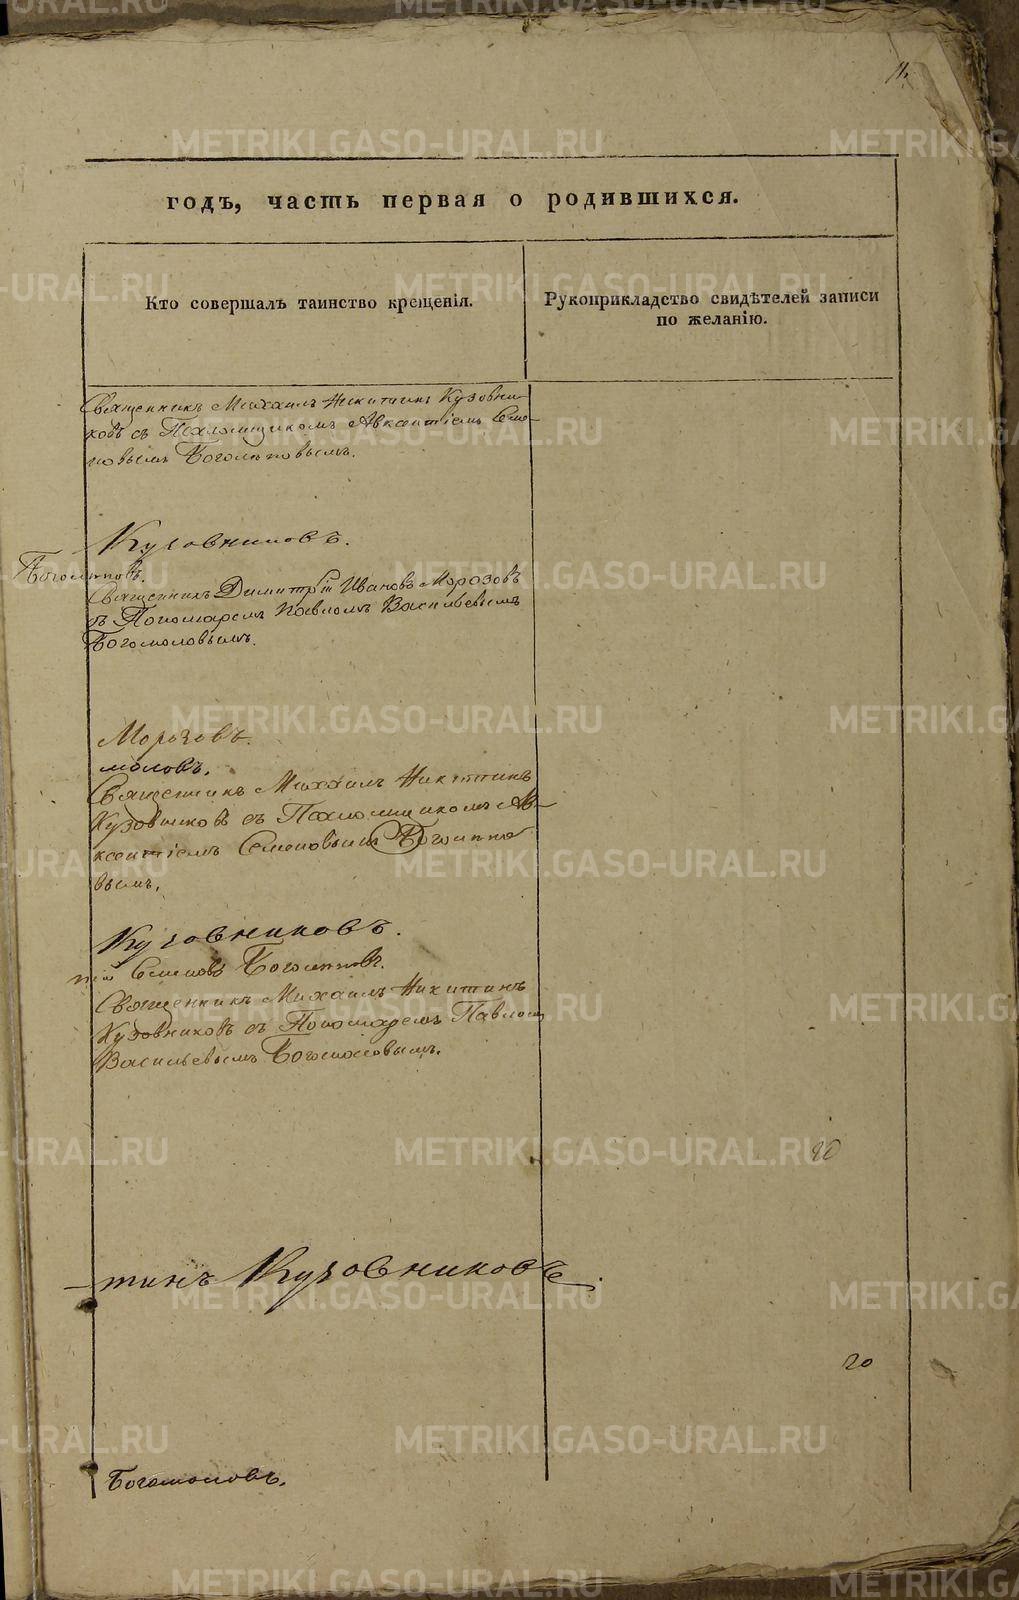 METRIKI.GASO-URAL.RU
11.
годъ, часть первая о родившихся.
Кто совершалъ таинство крещенія.
Рукоприкладство свидѣтелей записи
по желанію.
Священникъ Михаилъ Никитинъ Кузовни-
ковъ съ Псаломщикомъ Авксентіемъ Семе-
новымъ Боголѣповымъ.
Кузовниковъ.
Боголѣповъ.
Священникъ Димитрій Ивановъ Морозовъ
съ Пономаремъ Павломъ Васильевымъ
Богомоловымъ.
Морозовъ.
моловъ.
Священникъ Михаилъ Никитинъ
Кузовниковъ съ Псаломщикомъ Ав-
ксентіемъ Семеновымъ Боголѣпо-
вымъ.
Кузовниковъ.
тій Семеновъ Боголѣповъ.
Священникъ Михаилъ Никитинъ
Кузовниковъ съ Пономаремъ Павломъ
Васильевымъ Богомоловымъ.
тинъ Кузовниковъ.
20
Богомоловъ.